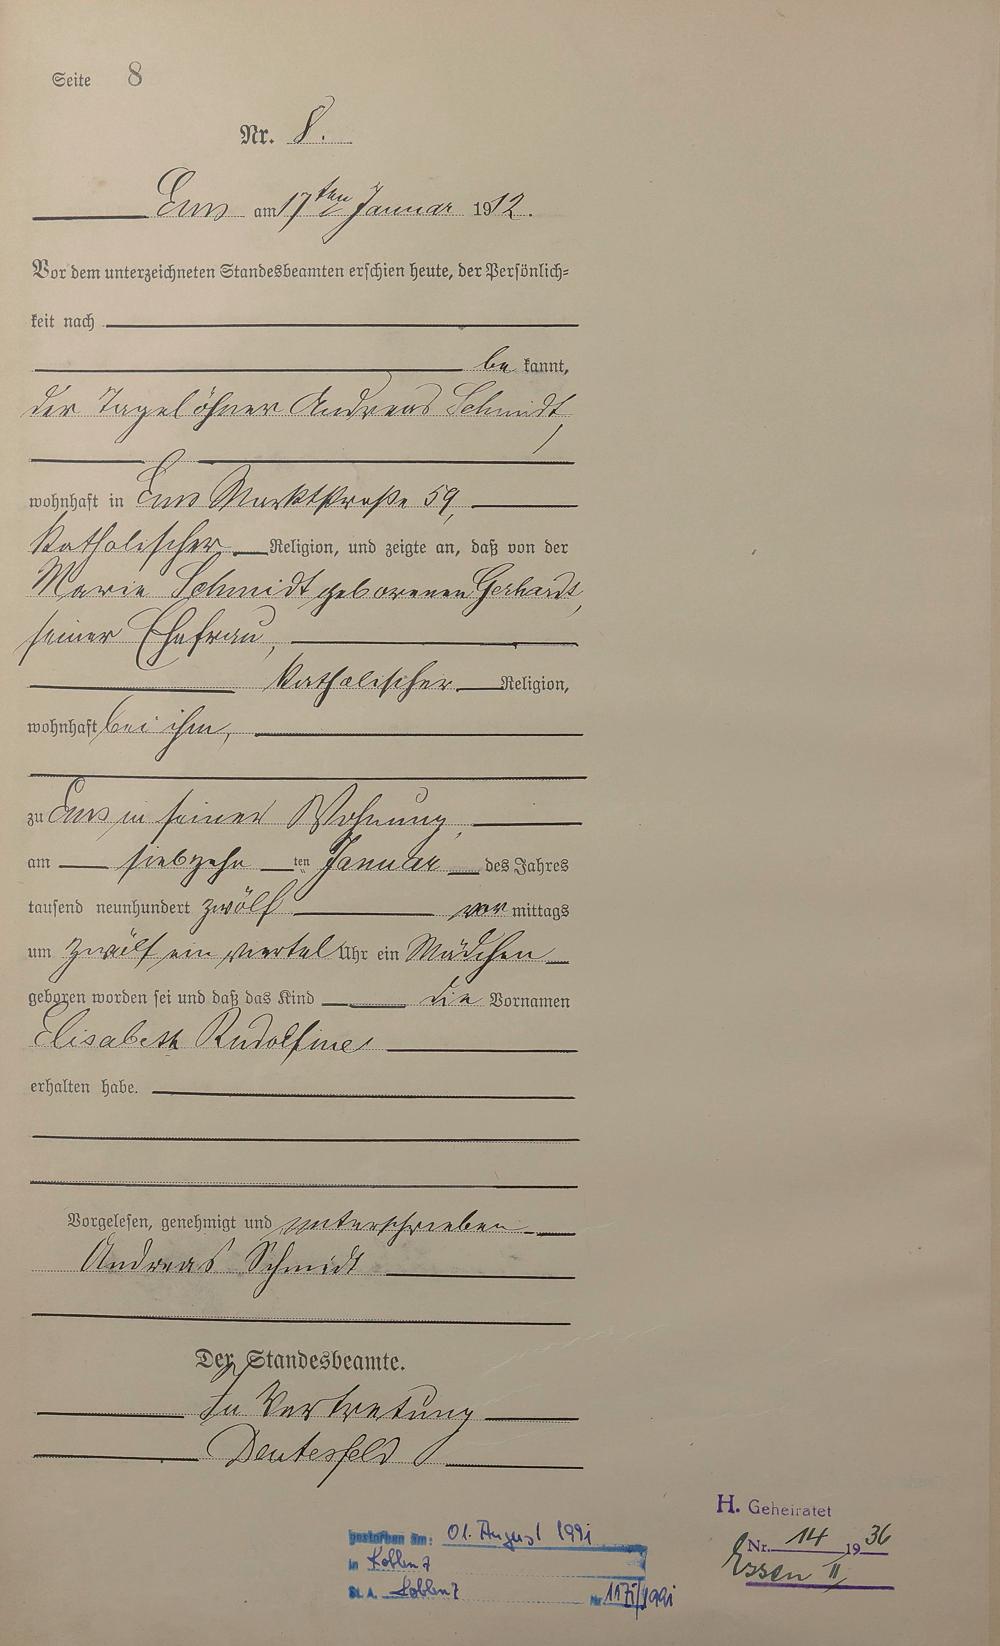 Seite 8
Nr. 8.
Ems am 17ten Januar 1912.
Vor dem unterzeichneten Standesbeamten erschien heute, der Persönlich=
keit nach
be kannt,
der Tagelöhner Andreas Schmidt,
wohnhaft in Ems Marktstraße 59,
katholischer Religion, und zeigte an, daß von der
Marie Schmidt geborenen Gerhardt,
seiner Ehefrau,
katholischer Religion,
wohnhaft bei ihm,
zu Ems in seiner Wohnung,
am siebzehn ten Januar des Jahres
tausend neunhundert zwölf vor mittags
um zwölf ein viertel Uhr ein Mädchen
geboren worden sei und daß das Kind die Vornamen
Elisabeth Rudolfine
erhalten habe.
Vorgelesen, genehmigt und unterschrieben
Andreas Schmidt
Der Standesbeamte.
In Vertretung
gestorben am: 01. August 1991
in Koblenz
St. A. Koblenz Nr.
H. Geheiratet
Nr. 14 1936
Essen II